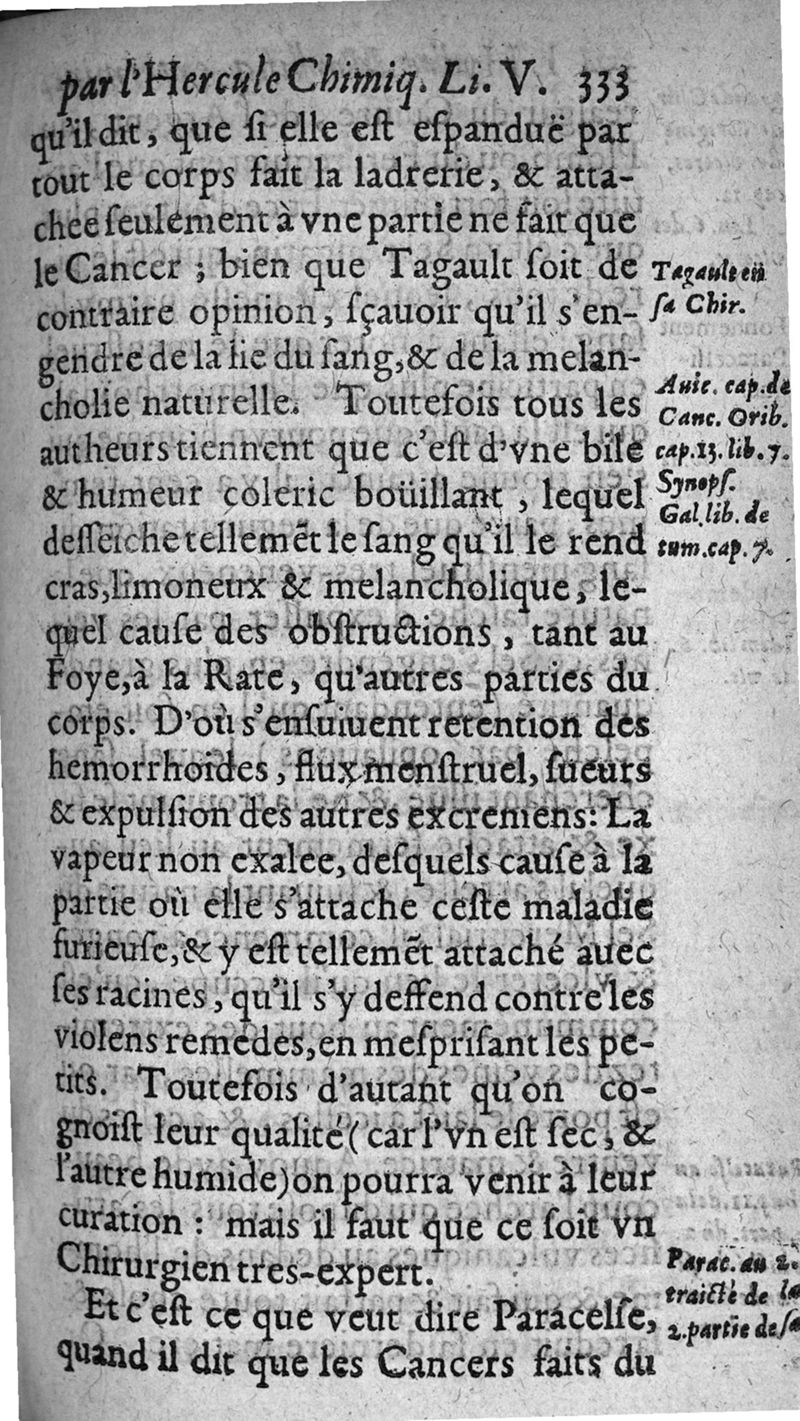 par l'Hercule Chimiq. Li. V. 333
qu'il dit, que ſi elle eſt eſpanduë par
tout le corps fait la ladrerie, & atta-
chee ſeulement à vne partie ne fait que
le Cancer ; bien que Tagault ſoit de
contraire opinion, ſçauoir qu'il s'en-
gendre de la lie du ſang, & de la melan-
cholie naturelle. Toutefois tous les
autheurs tiennent que c'eſt d'vne bile
& humeur coleric boüillant, lequel
deſſeiche tellemẽt le ſang qu'il le rend
cras, limoneux & melancholique, le-
quel cauſe des obſtructions, tant au
Foye, à la Rate, qu'autres parties du
corps. D'où s'enſuiuent retention des
hemorrhoïdes, flux menſtruel, ſueurs
& expulſion des autres excremens: La
vapeur non exalee, deſquels cauſe à la
partie où elle s'attache ceſte maladie
furieuſe, & y eſt tellemẽt attaché auec
ſes racines, qu'il s'y deffend contre les
violens remedes, en meſpriſant les pe-
tits. Toutefois d'autant qu'on co-
gnoiſt leur qualité (car l'vn eſt ſec, &
l'autre humide) on pourra venir à leur
curation : mais il faut que ce ſoit vn
Chirurgien tres-expert.
Et c'eſt ce que veut dire Paracelſe,
quand il dit que les Cancers faits du
Tagault en
ſa Chir.
Auic. cap. de
Canc. Orib.
cap. 13. lib. 7.
Synopſ.
Gal. lib. de
tum. cap. 7.
Parac. au 2.
traicté de la
2. partie de ſa